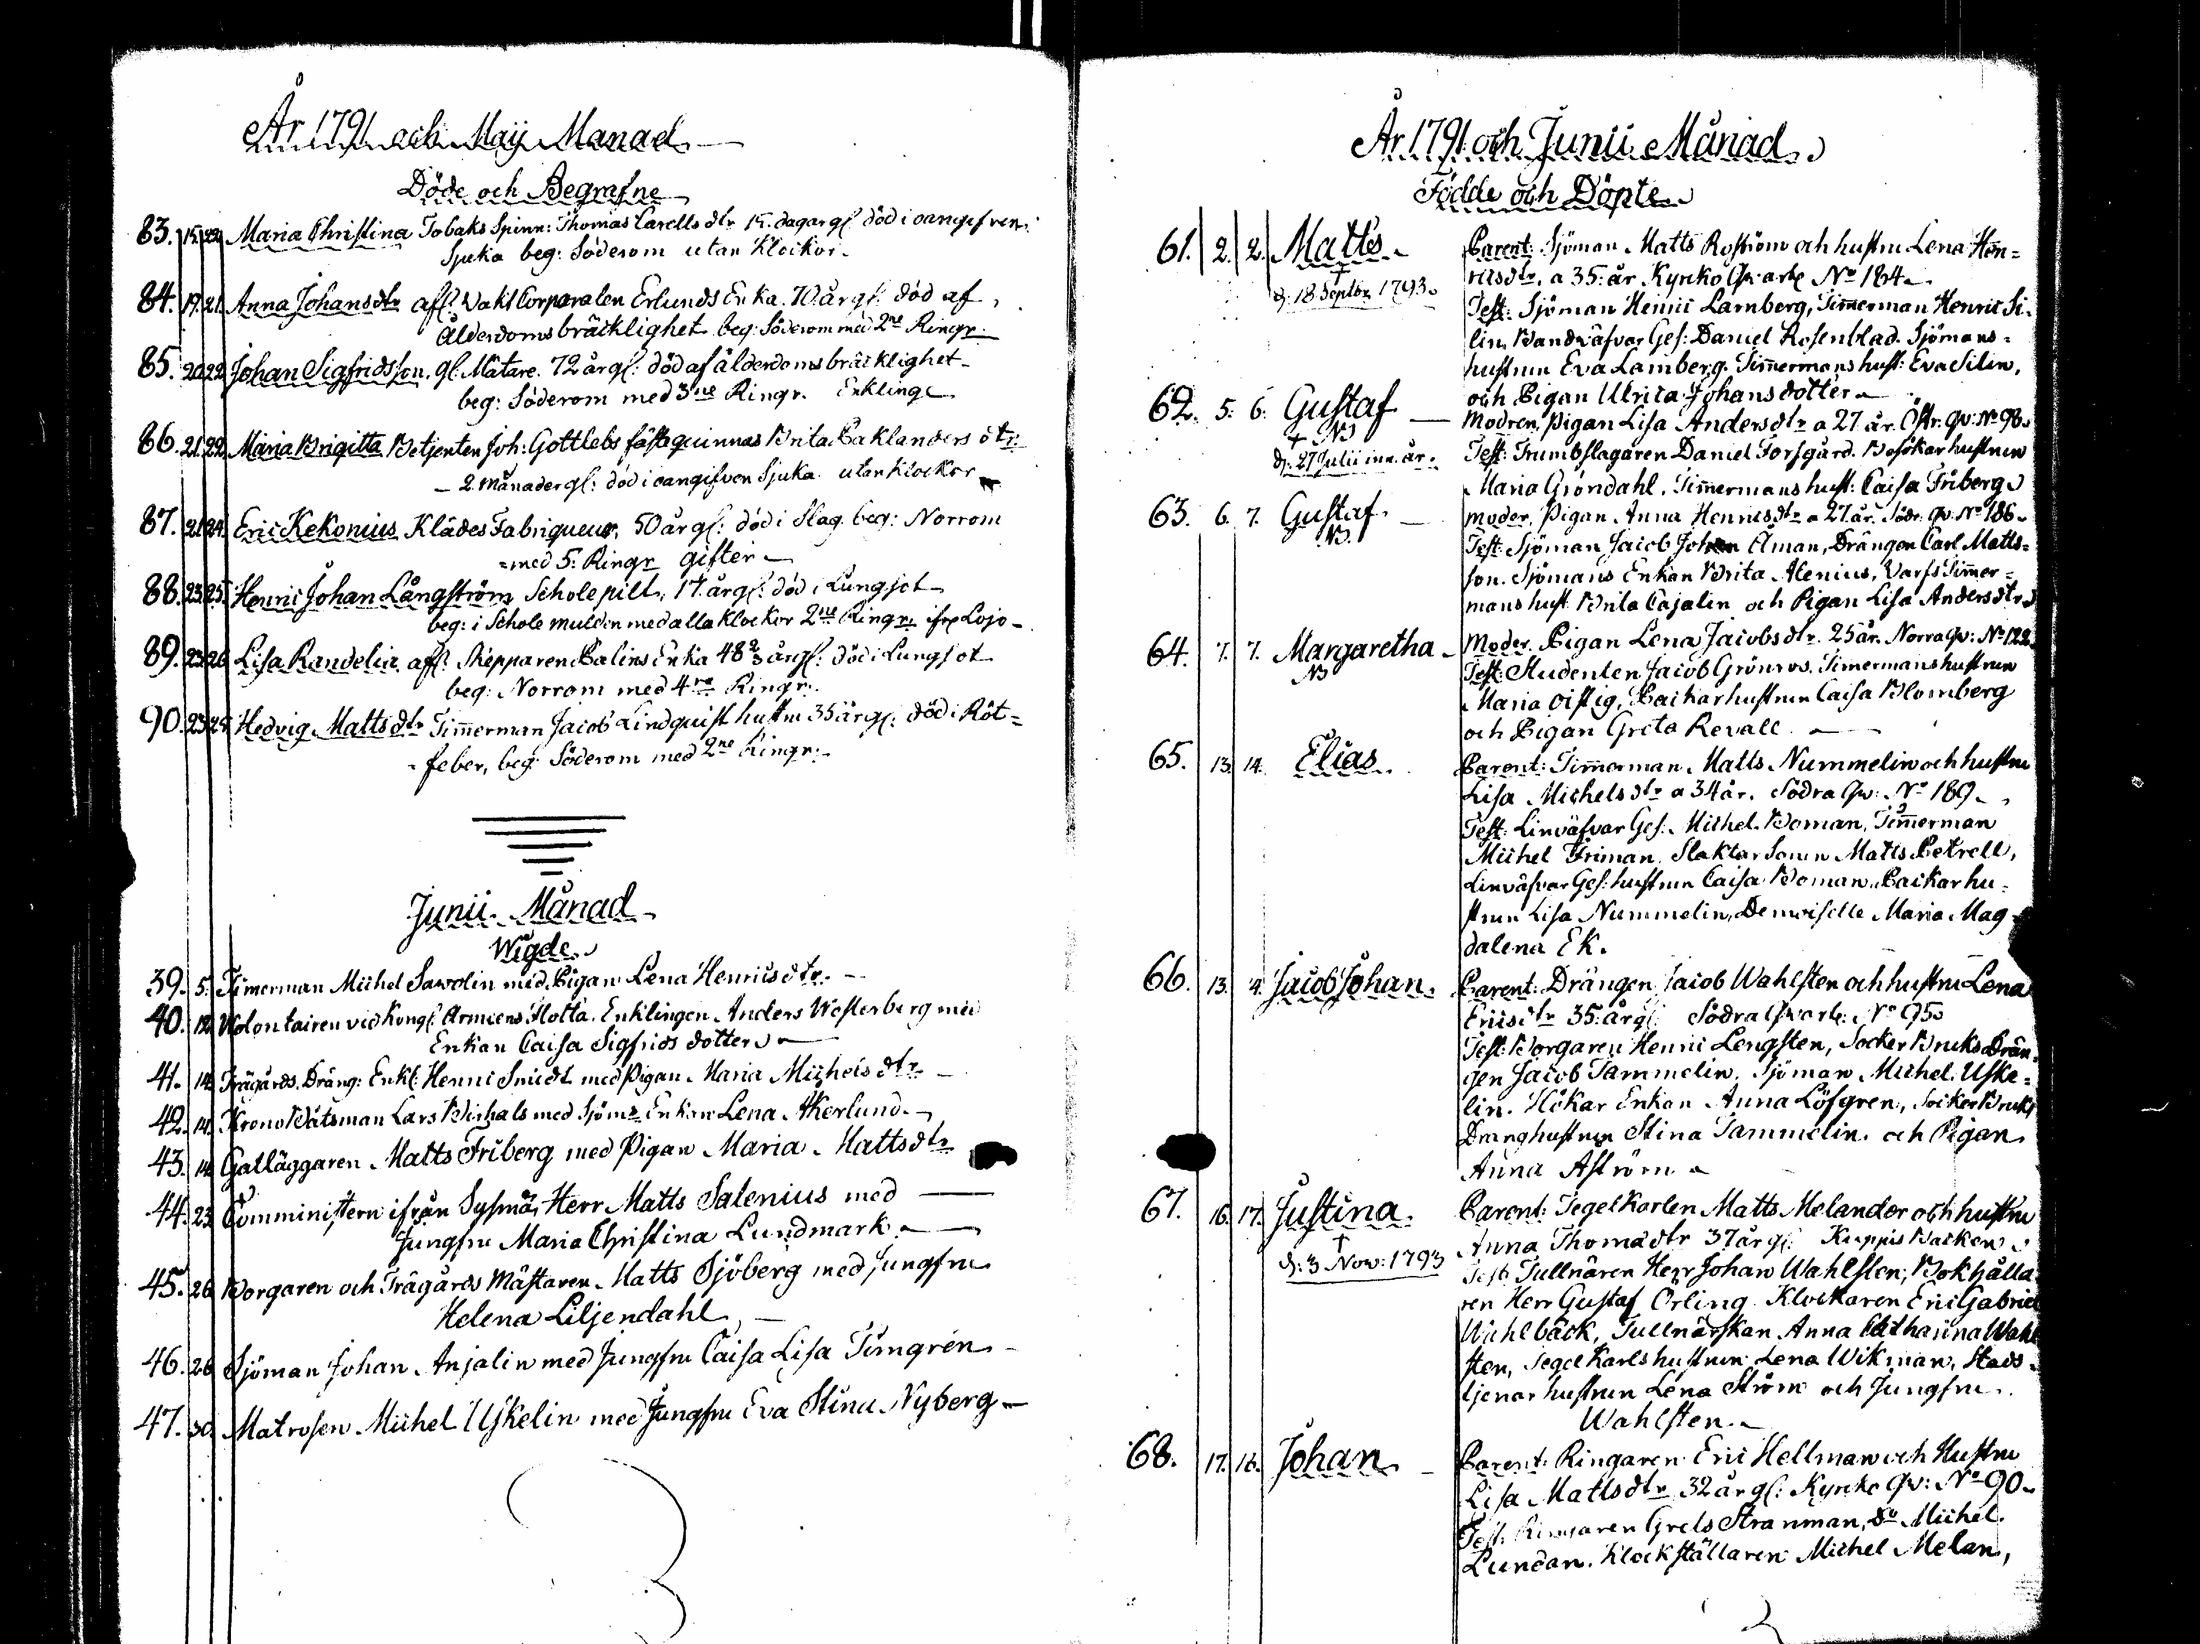 År 1791 och Maij Manad
Döde och Begrafne
83. 15. 22. Maria Christina Tobaks Spinn: Thomas Carells dtr 15. dagar gl: död i oangifven
Sjuka beg: Söderom utan Klockor.
84. 17. 21. Anna Johansdtr afl: Wakt Corporalen Erlunds Enka. 70 år gl: död af
Ålderdoms bräcklighet beg: Söderom med 2ne Ringr.
85. 20. 22. Johan Sigfridsson. gl. Mätare. 72 år gl: död af ålderdoms bräcklighet
beg: Söderom med 3ne Ringr. Enkling
86. 21. 22. Maria Brigitta Betjenten Joh: Gottlebs fästequinnas Brita Baklanders dtr:
2. månader gl: död i oangifven Sjuka utan klockor
87. 21. 24. Eric Kekonius Klädes Fabriqueur, 50 år gl: död i Slag. beg: Norrom
med 5: Ringr gifter
88. 23. 25. Henric Johan Långström Schole pilt, 17. år gl: död i Lungsot
beg: i Schole mulden med alla klockor 2ne Ringr. ifr. Lojo
89. 23. 26. Lisa Randelia afl: Skepparen Palins Enka 48 2/3 år gl: död i Lungsot
beg: Norrom med 4ra Ringr:
90. 23. 24. Hedvig Matts dtr Timmerman Jacob Lindquist hustru 35 år gl: död i Röt=
feber, beg: Söderom med 2ne Ringr:
Junii Månad
Wigde
39. 5. Timerman Michel Sawolin med Pigan Lena Henricsdtr.
40. 12. Volontairen vid Kongl Armeens flotta. Enklingen Anders Westerberg med
Enkan Caisa Sigfrids dotter
41. 14. Trägårds. Dräng: Enkl: Henric Smidt med Pigan Maria Michels dtr
42. 14. Krono Båtsman Lars med Sjömz Enkan Lena Åkerlund.
43. 14. Gatläggaren Matts Friberg med Pigan Maria Mattsdtr
44. 23. Comministern ifrån Sysmä, Herr Matts Salenius med
Jungfru Maria Christina Lundmark
45. 26. Borgaren och Trägårds Mästaren Matts Sjöberg med Jungfru
Helena Liljendahl
46. 28. Sjöman Johan Anjalin med Jungfru Caisa Lisa Timgrén
47. 30. Matrosen Michel Uskelin med Jungfru Eva Stina Nyberg
År 1791 och Junii Månad
Födde och Döpte
61. 2. 2. Matts
† d: 18 Septbr 1793.
Parent: Sjöman Matts Roström och hustru Lena Hen=
ricsdtr, a 35: år Kyrko Qvart: No 184
Test: Sjöman Henric Lamberg, Timmerman Henric Si=
lin, Bandväfvar Ges: Daniel Rosenblad. Sjömans=
hustrun Eva Lamberg. Timmermans hust: Eva Silin,
och Pigan Ulrica Johans dotter
62. 5. 6. Gustaf
† NB
d: 27 Julii inn. år.
Modren, Pigan Lisa Anders dtr a 27. år. Östr. qv: No 98.
Test: Trumbslagaren Daniel Forsgård. Besökar hustrun
Maria Gröndahl. Timmermans hust: Caisa Friberg
63. 6. 7. Gustaf.
NB.
Moder, Pigan Anna Henricsdtr a 27. år. Södr. qv: No 186
Test: Sjöman Jacob Johan Åman, Drängen Carl Matts=
son. Sjömans Enkan Brita Alenius, Varfs Timmer=
mans hust. Brita Cajalin och Pigan Lisa Andersdtr
64. 7. 7. Margaretha
NB
Moder. Pigan Lena Jacobs dtr. 25 år. Norra qv: No 122.
Test: Studenten Jacob Grönros. Timermans hustrun
Maria Oistig, Backar hustrun Caisa Blomberg
och Pigan Greta Revall
65. 13. 14. Elias
Parent: Timmerman Matts Nummelin och hustru
Lisa Michels dtr a 34 år. Södra qv: No 189.
Test: Linväfvar Ges: Michel Boman, Timmerman
Michel Friman. Slaktar Sonen Matts Petrell,
Linväfvar Ges: hustrun Caisa Boman. Backar hu=
strun Lisa Nummelin, Demoiselle Maria Mag=
dalena Ek.
66. 13. 14. Jacob Johan.
Parent: Drängen Jacob Wahlsten och hustru Lena
Ericsdtr 35: år gl: Södra Qvart: No 95
Test: Borgaren Henric Lengsten, Socker Bruks Drän=
gen Jacob Tammelin. Sjöman Michel Uske=
lin. Hökar Enkan Anna Löfgren, Socker Bruks
Dräng hustrun Stina Tammelin. och Pigan
Anna Aström
67. 16. 17. Justina.
† d: 3 Nov: 1793
Parent: Tegel Karlen Matts Melander och hustru
Anna Thomadtr 37 år gl: Kuppis Backen
Test: Tullnären Herr Johan Wahlsten, Bokhålla=
ren Herr Gustaf Orling Klockaren Eric Gabriel
Wahlbäck, Tullnärskan Anna Catharina Wahl
sten, Tegel Karls hustrun Lena Wikman, Stads=
tjenar hustrun Lena Ström och Jungfru
Wahlsten.
68. 17. 18. Johan
Parent: Ringaren Eric Hellman och Hustru
Lisa Mattsdtr 32 år gl: Kyrko qv: No 90
Test: Ringaren Grels Stranman, do Michel
Lundan. Klockställaren Michel Melan,